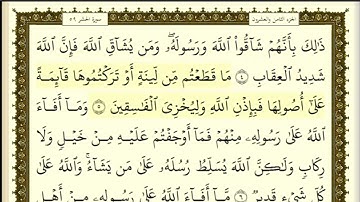 الجزء الثامن والعشرون سورة الحشر ٥٩
ذَٰلِكَ بِأَنَّهُمْ شَآقُّوا۟ ٱللَّهَ وَرَسُولَهُۥ ۖ وَمَن يُشَآقِّ ٱللَّهَ فَإِنَّ ٱللَّهَ
شَدِيدُ ٱلْعِقَابِ ٤ مَا قَطَعْتُم مِّن لِّينَةٍ أَوْ تَرَكْتُمُوهَا قَآئِمَةً
عَلَىٰٓ أُصُولِهَا فَبِإِذْنِ ٱللَّهِ وَلِيُخْزِىَ ٱلْفَـٰسِقِينَ ٥ وَمَآ أَفَآءَ
ٱللَّهُ عَلَىٰ رَسُولِهِۦ مِنْهُمْ فَمَآ أَوْجَفْتُمْ عَلَيْهِ مِنْ خَيْلٍ وَلَا
رِكَابٍ وَلَـٰكِنَّ ٱللَّهَ يُسَلِّطُ رُسُلَهُۥ عَلَىٰ مَن يَشَآءُ ۚ وَٱللَّهُ عَلَىٰ
كُلِّ شَىْءٍ قَدِيرٌ ٦ مَّآ أَفَآءَ ٱللَّهُ عَلَىٰ رَسُولِهِۦ مِنْ أَهْلِ